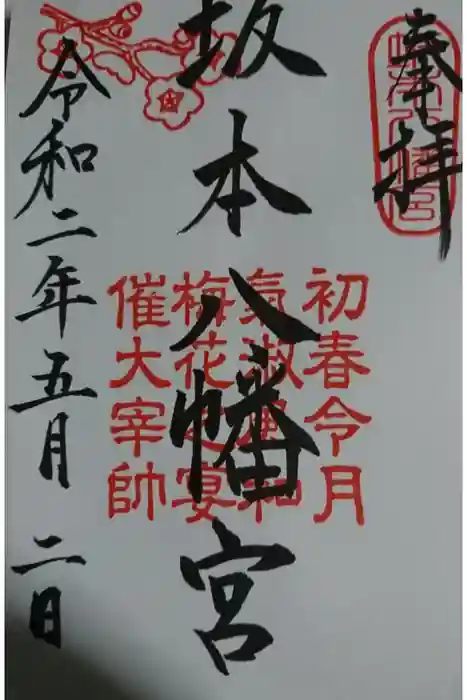 奉拝
坂本八幡宮
令和二年五月二日
初春令月
氣淑風和
梅花之宴
催大宰帥